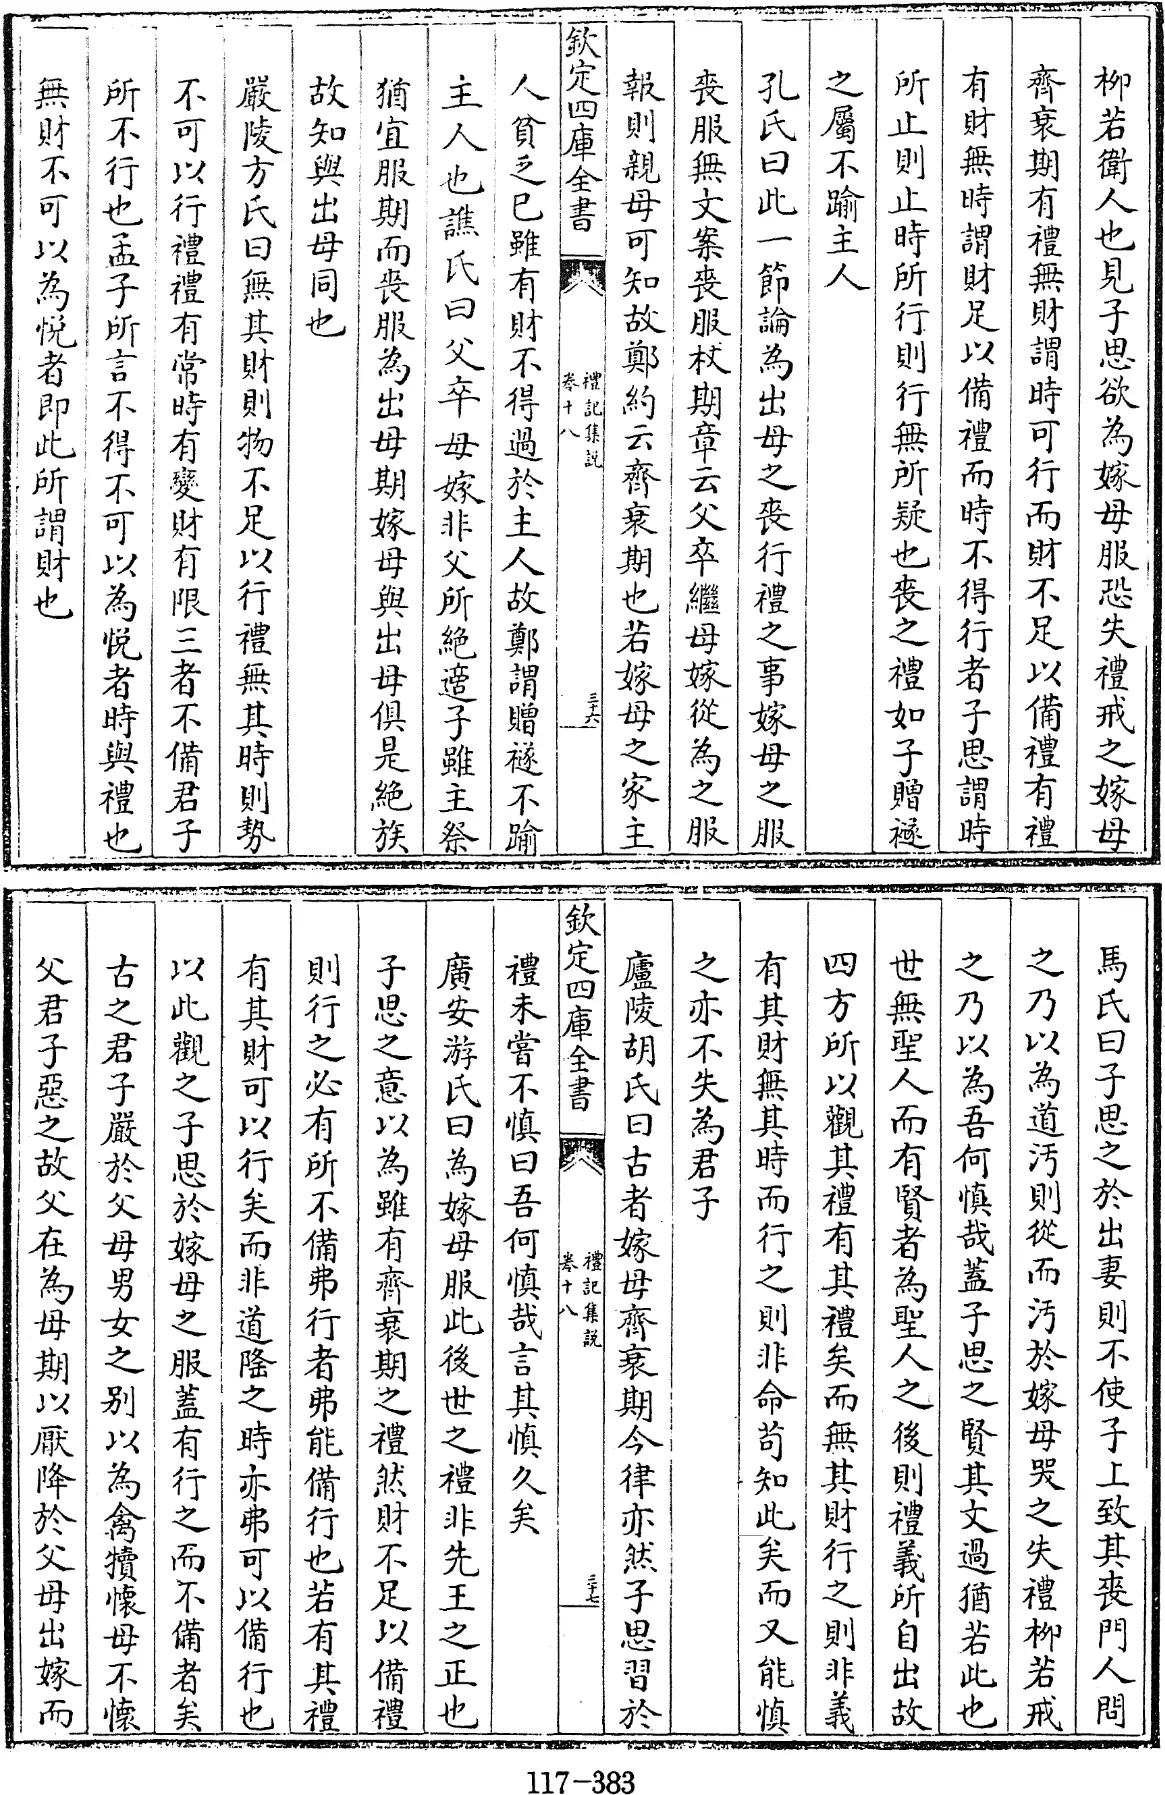 柳若衛人也見子思欲為嫁母服恐失禮戒之嫁母
齊衰期有禮無財謂時可行而財不足以備禮有禮
有財無時謂財足以備禮而時不得行者子思謂時
所止則止時所行則行無所疑也喪之禮如子贈襚
之屬不踰主人
孔氏曰此一節論為出母之喪行禮之事嫁母之服
喪服無文案喪服杖期章云父卒繼母嫁從為之服
報則親母可知故鄭約云齊衰期也若嫁母之家主
欽定四庫全書
禮記集說
卷十八
三十六
人貧乏已雖有財不得過於主人故鄭謂贈襚不踰
主人也譙氏曰父卒母嫁非父所絶適子雖主祭
猶宜服期而喪服為出母期嫁母與出母俱是絶族
故知與出母同也
嚴陵方氏曰無其財則物不足以行禮無其時則勢
不可以行禮禮有常時有變財有限三者不備君子
所不行也孟子所言不得不可以為悅者時與禮也
無財不可以為悅者即此所謂財也
馬氏曰子思之於出妻則不使子上致其喪門人問
之乃以為道汚則從而汚於嫁母哭之失禮柳若戒
之乃以為吾何慎哉蓋子思之賢其文過猶若此也
世無聖人而有賢者為聖人之後則禮義所自出故
四方所以觀其禮有其禮矣而無其財行之則非義
有其財無其時而行之則非命苟知此矣而又能慎
之亦不失為君子
廬陵胡氏曰古者嫁母齊衰期今律亦然子思習於
欽定四庫全書
禮記集說
卷十八
三十七
禮未嘗不慎曰吾何慎哉言其慎久矣
廣安游氏曰為嫁母服此後世之禮非先王之正也
子思之意以為雖有齊衰期之禮然財不足以備禮
則行之必有所不備弗行者弗能備行也若有其禮
有其財可以行矣而非道隆之時亦弗可以備行也
以此觀之子思於嫁母之服蓋有行之而不備者矣
古之君子嚴於父母男女之别以為禽犢懷母不懷
父君子惡之故父在為母期以厭降於父母出嫁而
117-383